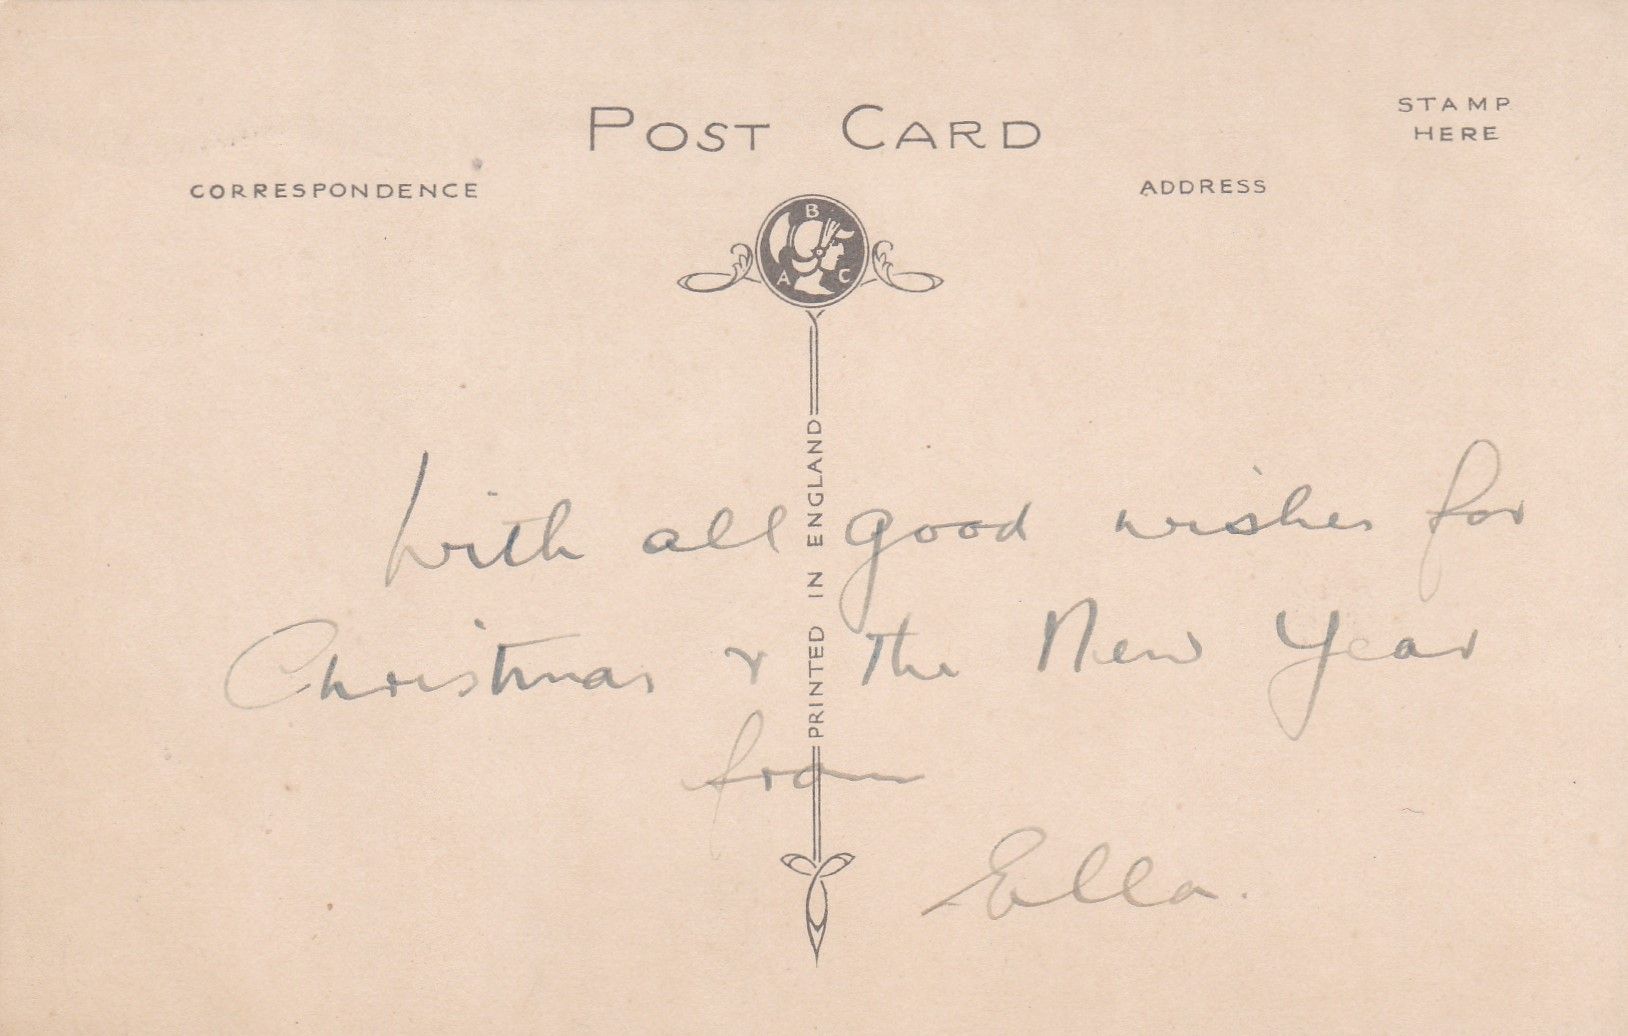 POST CARD
STAMP
HERE
CORRESPONDENCE
ADDRESS
B
A C
PRINTED IN ENGLAND
With all good wishes for
Christmas & the New Year
from
Ella.